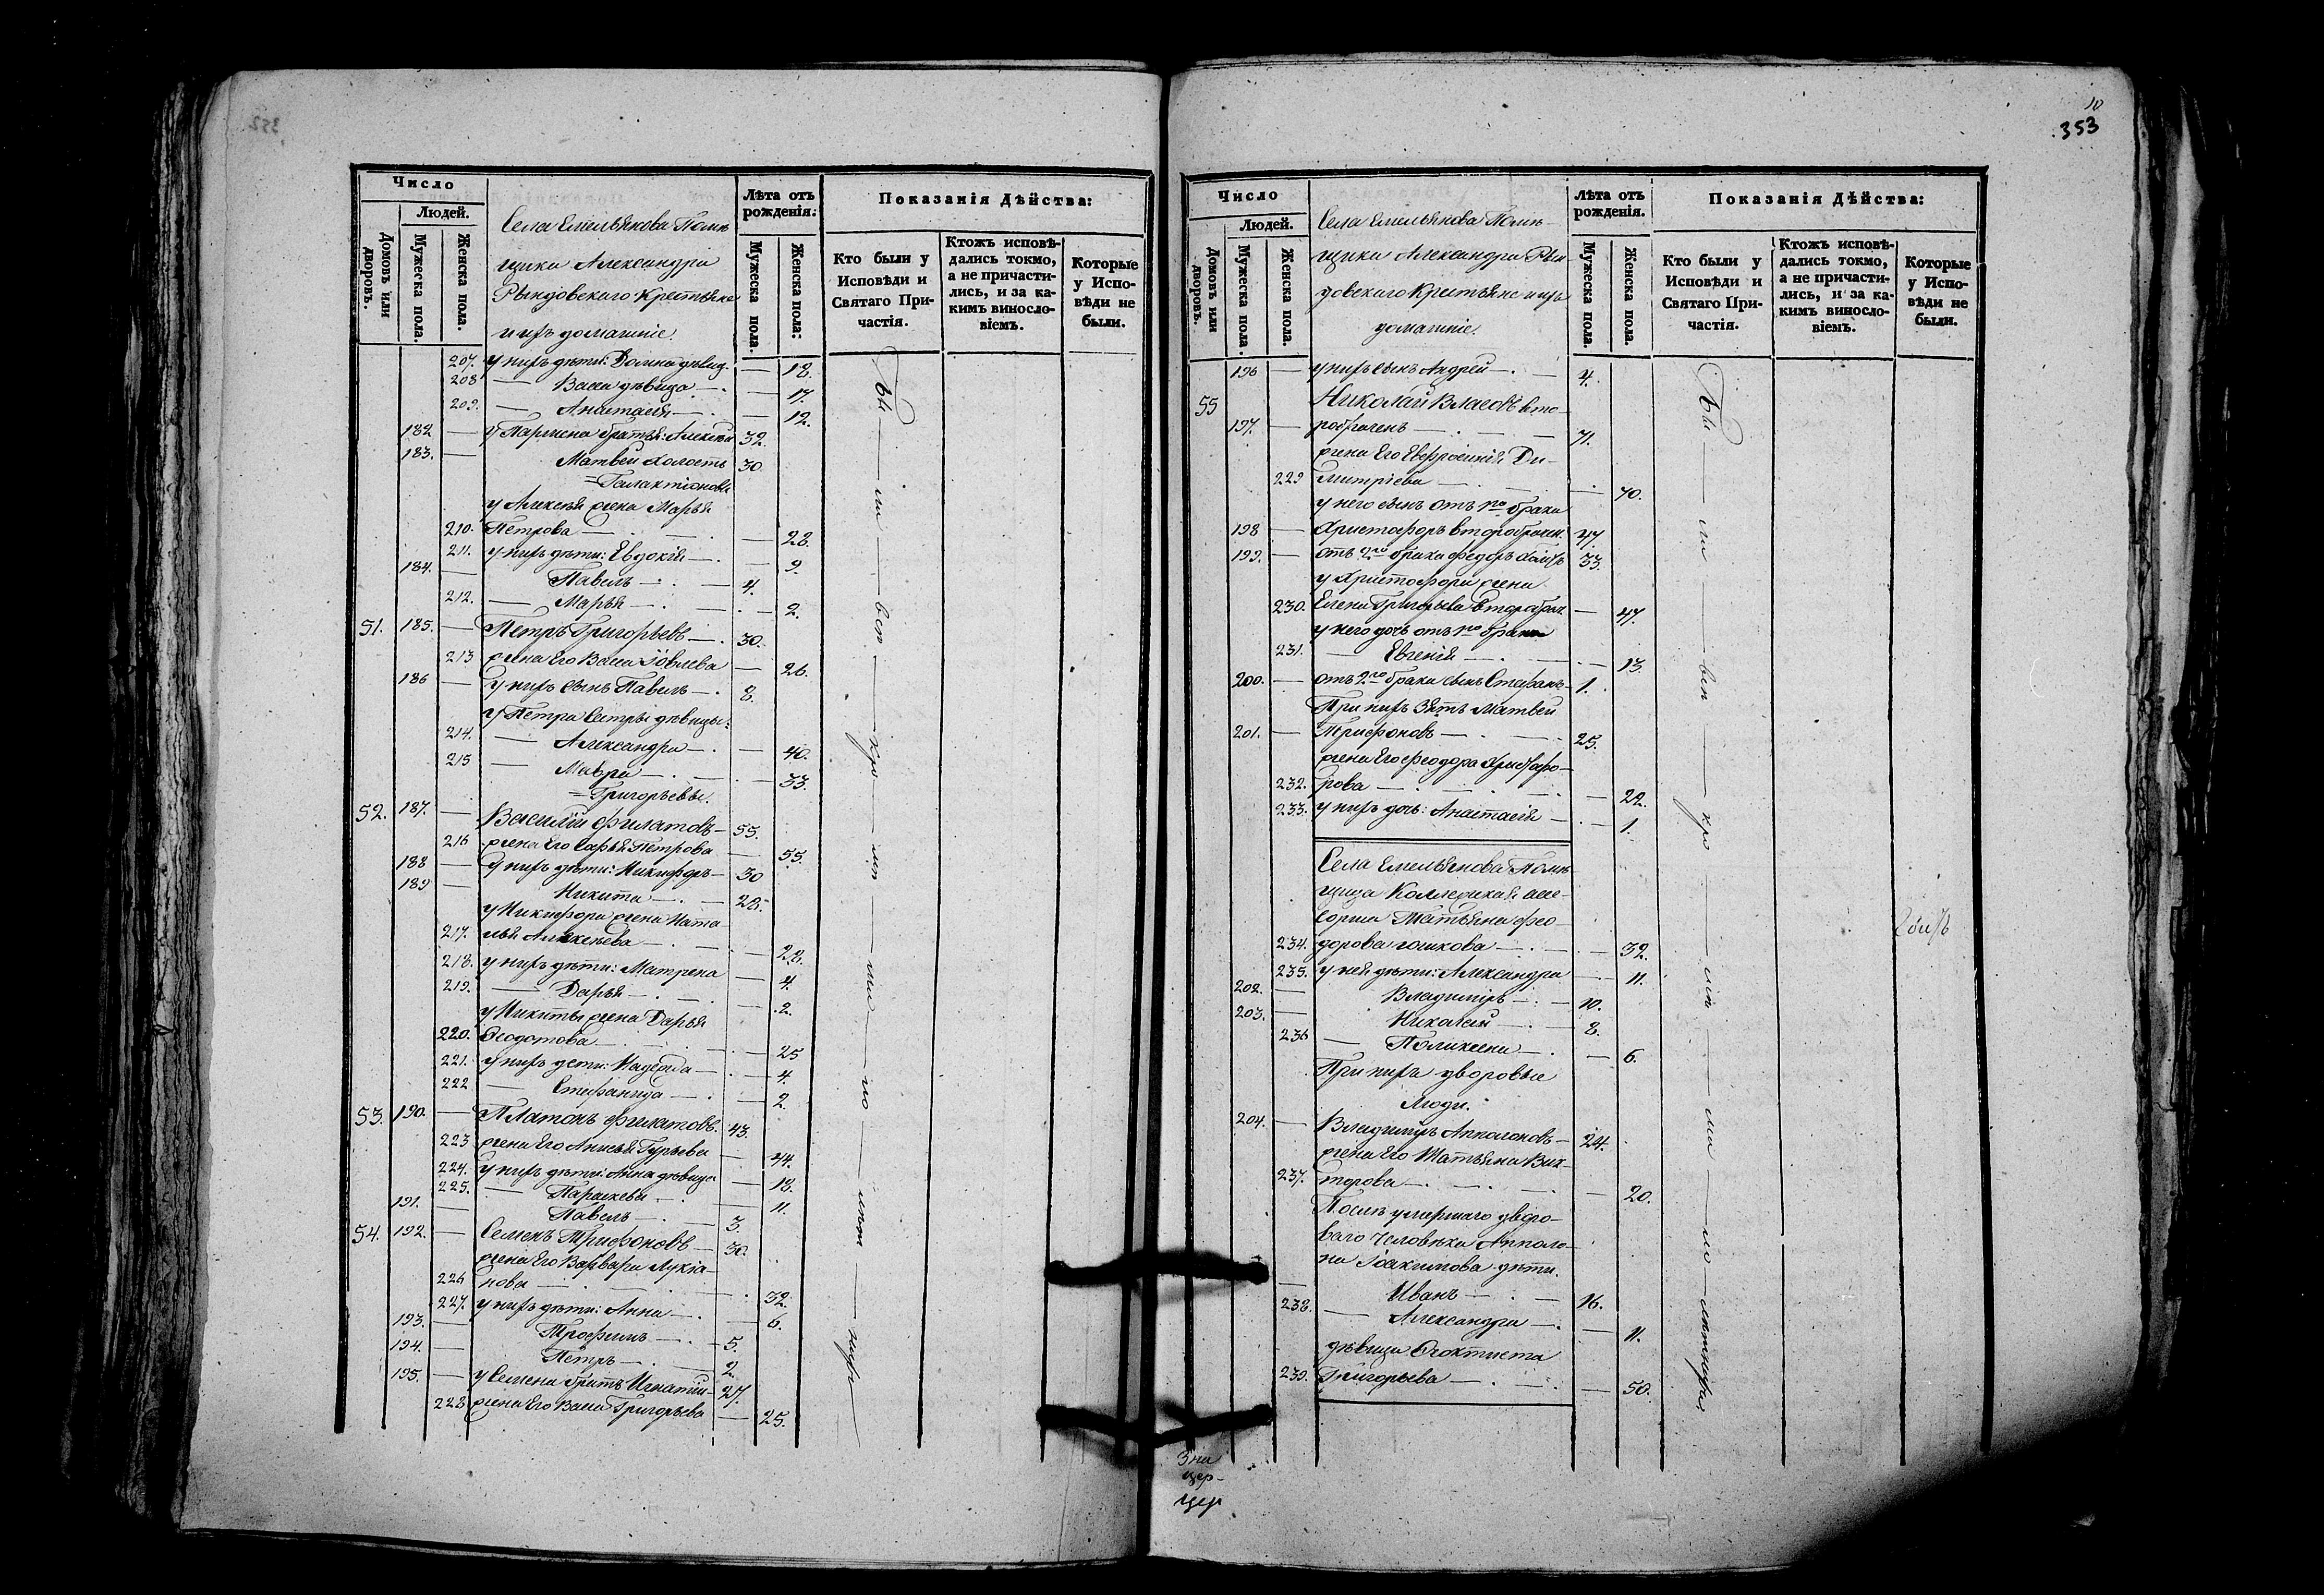 352
Число
Людей.
Домовъ или дворовъ.
Мужеска пола.
Женска пола.
Села Емельянова Помѣ
щика Александра
Рындовскаго Крестьяне
и ихъ домашніе.
Лѣта отъ рожденія:
Мужеска пола.
Женска пола:
Показанія Дѣйства:
Кто были у Исповѣди и Святаго Причастія.
Ктожъ исповѣдались токмо, а не причастились, и за какимъ винословіемъ.
Которые у Исповѣди не были.
207. у нихъ дѣти: Домна дѣвиц. — 18.
208 — Васса дѣвица — 17.
209. — Анастасія — 12.
182 — у Пармена братья: Алексѣй 32.
183. — Матвей холостъ 30.
=Галактіоновы
у Алексѣя жена Марья
210. Петрова — 28.
211. у нихъ дѣти: Евдокія — 9.
184. — Павелъ — 4.
212. — Марья — 2.
51. 185. — Петръ Григорьевъ — 30.
213 жена Его Васса Іовлева — 26.
186 — у нихъ сынъ Павелъ — 8.
у Петра сестры дѣвицы:
214. — Александра — 40.
215 — Мавра — 33.
=Григорьевы.
52. 187. — Василій Филатовъ — 55.
216 жена Его Софья Петрова — 55.
188 — у нихъ дѣти: Никифоръ — 30
189 — Никита — 28.
у Никифора жена Ната
217. лья Алексѣева — 28.
218. у нихъ дѣти: Матрена — 4.
219. — Дарья — 2.
у Никиты жена Дарья
220. Ѳедотова — 25
221. у нихъ дети: Надежда — 4.
222 — Стефанида — 2.
53. 190. — Платонъ Филатовъ. 43.
223 жена Его Анисья Гурьева — 44.
224. у нихъ дѣти: Анна дѣвица — 18.
225. — Параскева — 11.
191. — Павелъ — 3.
54. 192. — Семенъ Трифоновъ — 30.
жена Его Варвара Лукія-
226 нова — 32.
227. у нихъ дѣти: Анна — 6.
193. — Трофимъ — 5.
194. — Петръ — 2.
195. — у Семена братъ Игнатій — 27.
228 жена Его Васса Григорьева — 25.
10
353
Число
Людей.
Домовъ или дворовъ.
Мужеска пола.
Женска пола.
Села Емельянова Помѣ-
щика Александра Рын
довскаго Крестьяне и ихъ
домашніе.
Лѣта отъ рожденія.
Мужеска пола.
Женска пола.
Показанія Дѣйства:
Кто были у Исповѣди и Святаго Причастія.
Ктожъ исповѣдались токмо, а не причастились, и за какимъ винословіемъ.
Которые у Исповѣди не были.
196 — у нихъ сынъ Андрей — 4.
55 Николай Власовъ вто-
197. — робрачен — 71.
жена Его Евфросинія Ди-
229 митріева — 70.
у него сынъ отъ 1го брака
198 — Христофоръ второбрачн. 47.
199. — отъ 2го брака Федоръ 33.
у Христофора жена
230. Елена Григорьева второбрач — 47.
у него дочь отъ 1го брака
231. — Евгенія — 13.
200. — отъ 2го брака сынъ Стефанъ — 1.
При нихъ зять Матвей
201. — Трифоновъ — 25.
жена Его Феодора Христофо-
232. рова — 22.
233. у нихъ дочь: Анастасія — 1.
Села Емельянова Помѣ
щица Коллежская асе-
сорша Татьяна Фео-
234. дорова — 32.
235. у ней дѣти: Александра — 11.
202. — Владиміръ — 10.
203. — Николай — 8.
236 — Поликсена — 6.
При нихъ дворовые
люди.
204. — Владиміръ Апполоновъ — 24.
жена Его Татьяна Вик-
237. торова — 20.
Послѣ умершаго дворо-
ваго человѣка Апполо-
на Іоакимова дѣти.
— Иванъ — 16.
238. — Александра — 11.
дѣвица Ѳеоктиста
239. Григорьева — 50.